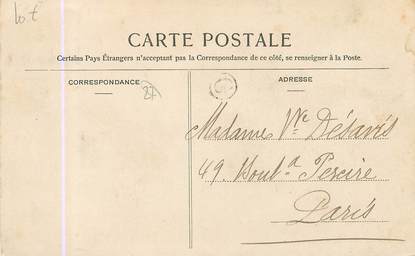 lot
CARTE POSTALE
Certains Pays Étrangers n'acceptant pas la Correspondance de ce côté, se renseigner à la Poste.
CORRESPONDANCE
ADRESSE
Madame Vve Désavis
49. Boul.d Pereire
Paris